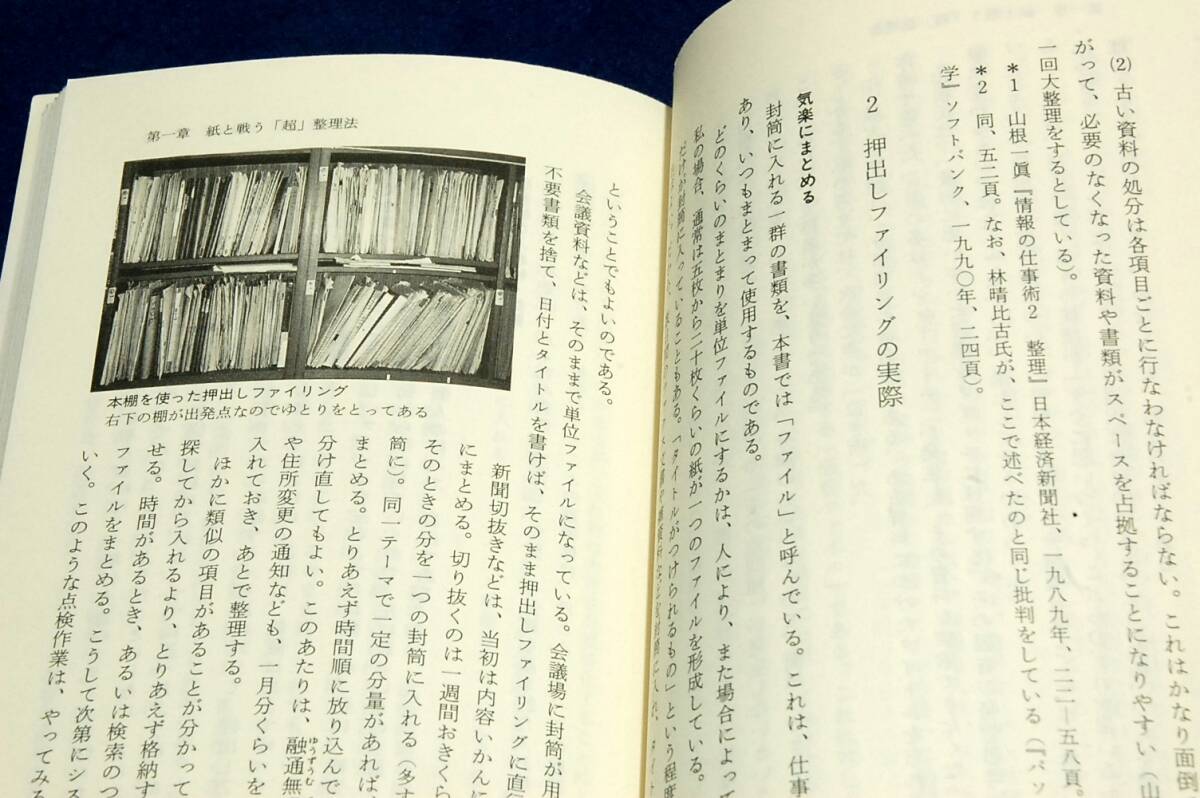 (2) 古い資料の処分は各項目ごとに行なわなければならない。これはかなり面倒
がって、必要のなくなった資料や書類がスペースを占拠することになりやすい（山
一回大整理をするとしている）。
*1 山根一眞『情報の仕事術2 整理』日本経済新聞社、一九八九年、二二一五八頁。
*2 同、五二頁。なお、林晴比古氏が、ここで述べたのと同じ批判をしている（『パッ
学』ソフトバンク、一九九〇年、二四頁）。
2 押出しファイリングの実際
気楽にまとめる
封筒に入れる一群の書類を、本書では「ファイル」と呼んでいる。これは、仕事
あり、いつもまとまって使用するものである。
どのくらいのまとまりを単位ファイルにするかは、人により、また場合によっ
私の場合、通常は五枚から二十枚くらいの紙が一つのファイルを形成している。
だけが封筒に入っていることもある。「タイトルがつけられるもの」という程度
第一章 紙と戦う「超」整理法
本棚を使った押出しファイリング
右下の棚が出発点なのでゆとりをとってある
ということでもよいのである。
会議資料などは、そのままで単位ファイルになっている。会議場に封筒が用
不要書類を捨て、日付とタイトルを書けば、そのまま押出しファイリングに直行
新聞切抜きなどは、当初は内容いかんに
にまとめる。切り抜くのは一週間おきくら
そのときの分を一つの封筒に入れる（多す
筒に）。同一テーマで一定の分量があれば、
まとめる。とりあえず時間順に放り込んで
分け直してもよい。このあたりは、融通無
ゆうずうむ
や住所変更の通知なども、一月分くらいを
入れておき、あとで整理する。
ほかに類似の項目があることが分かって
探してから入れるより、とりあえず格納す
せる。時間があるとき、あるいは検索のつ
ファイルをまとめる。こうして次第にシス
いく。このような点検作業は、やってみ